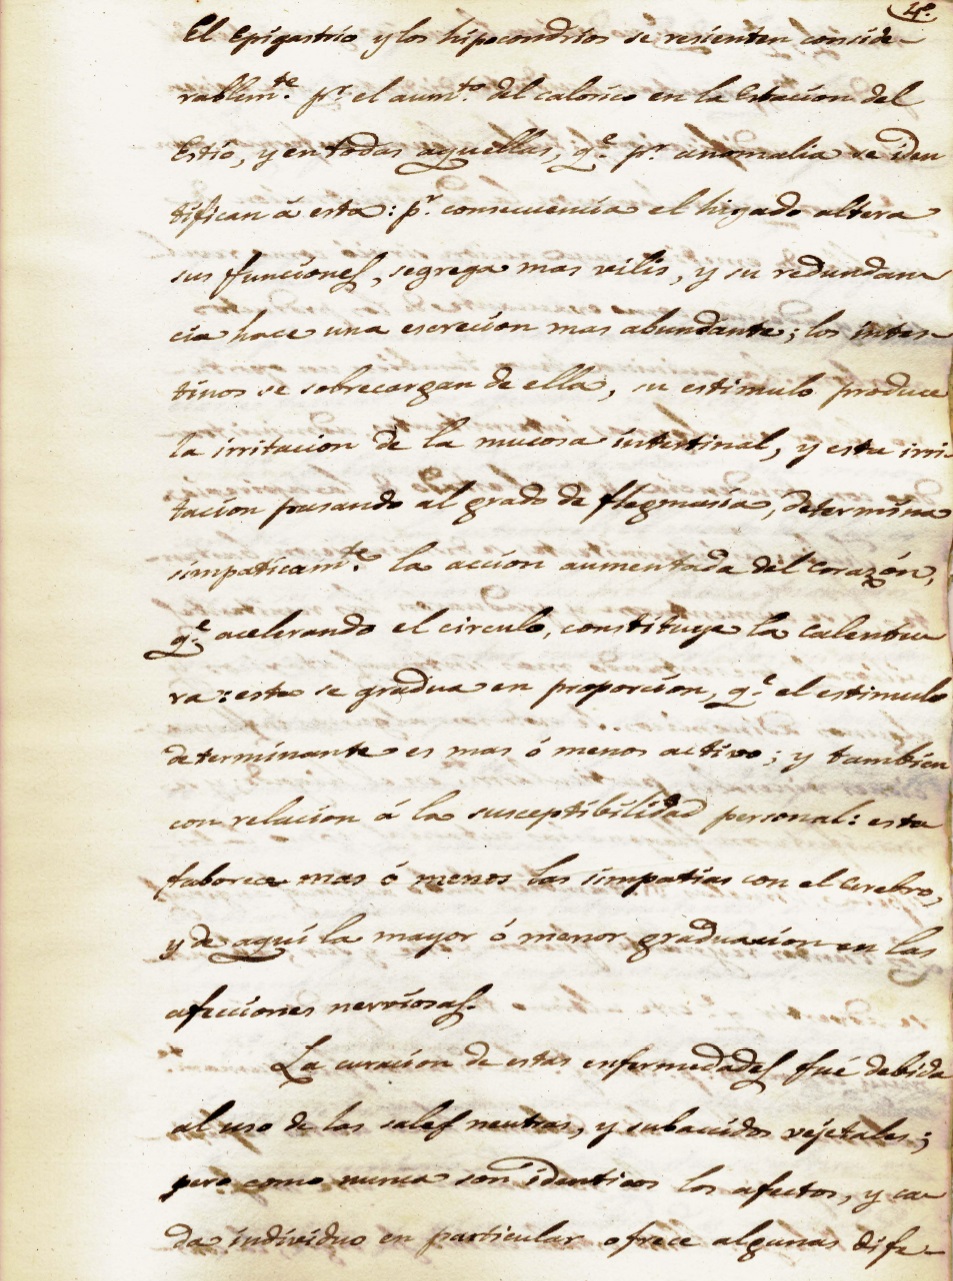 4º.
El Epigastrio y los hipocondrios se resienten conside-
rablemte. pr. el aumto. del calorico en la Estacion del
Estio, y en todas aquellas, qe. pr. anomalia se iden
tifican á esta: pr. consecuencia el higado altera
sus funciones, segrega mas vilis, y su redundan
cia hace una escrecion mas abundante; los intes-
tinos se sobrecargan de ella, su estimulo produce
la irritacion de la mucosa intestinal, y esta irri-
tacion pasando al grado de flegmasia, determina
simpaticamte. la accion aumentada del Corazón,
qe. acelerando el circulo, constituye la calentu
ra: esta se gradua en proporcion, qe. el estimulo
determinante es mas ó menos activo; y tambien
con relacion á la susceptibilidad personal: esta
faborece mas ó menos las simpatias con el cerebro,
y de aquí la mayor ó menor graduacion en las
afecciones nerviosas.
La curacion de estas enfermedades fué debida
al uso de las sales neutras, y subacidos vejetales;
pero como nunca son identicos los afectos, y ca
da individuo en particular ofrece algunas dife-